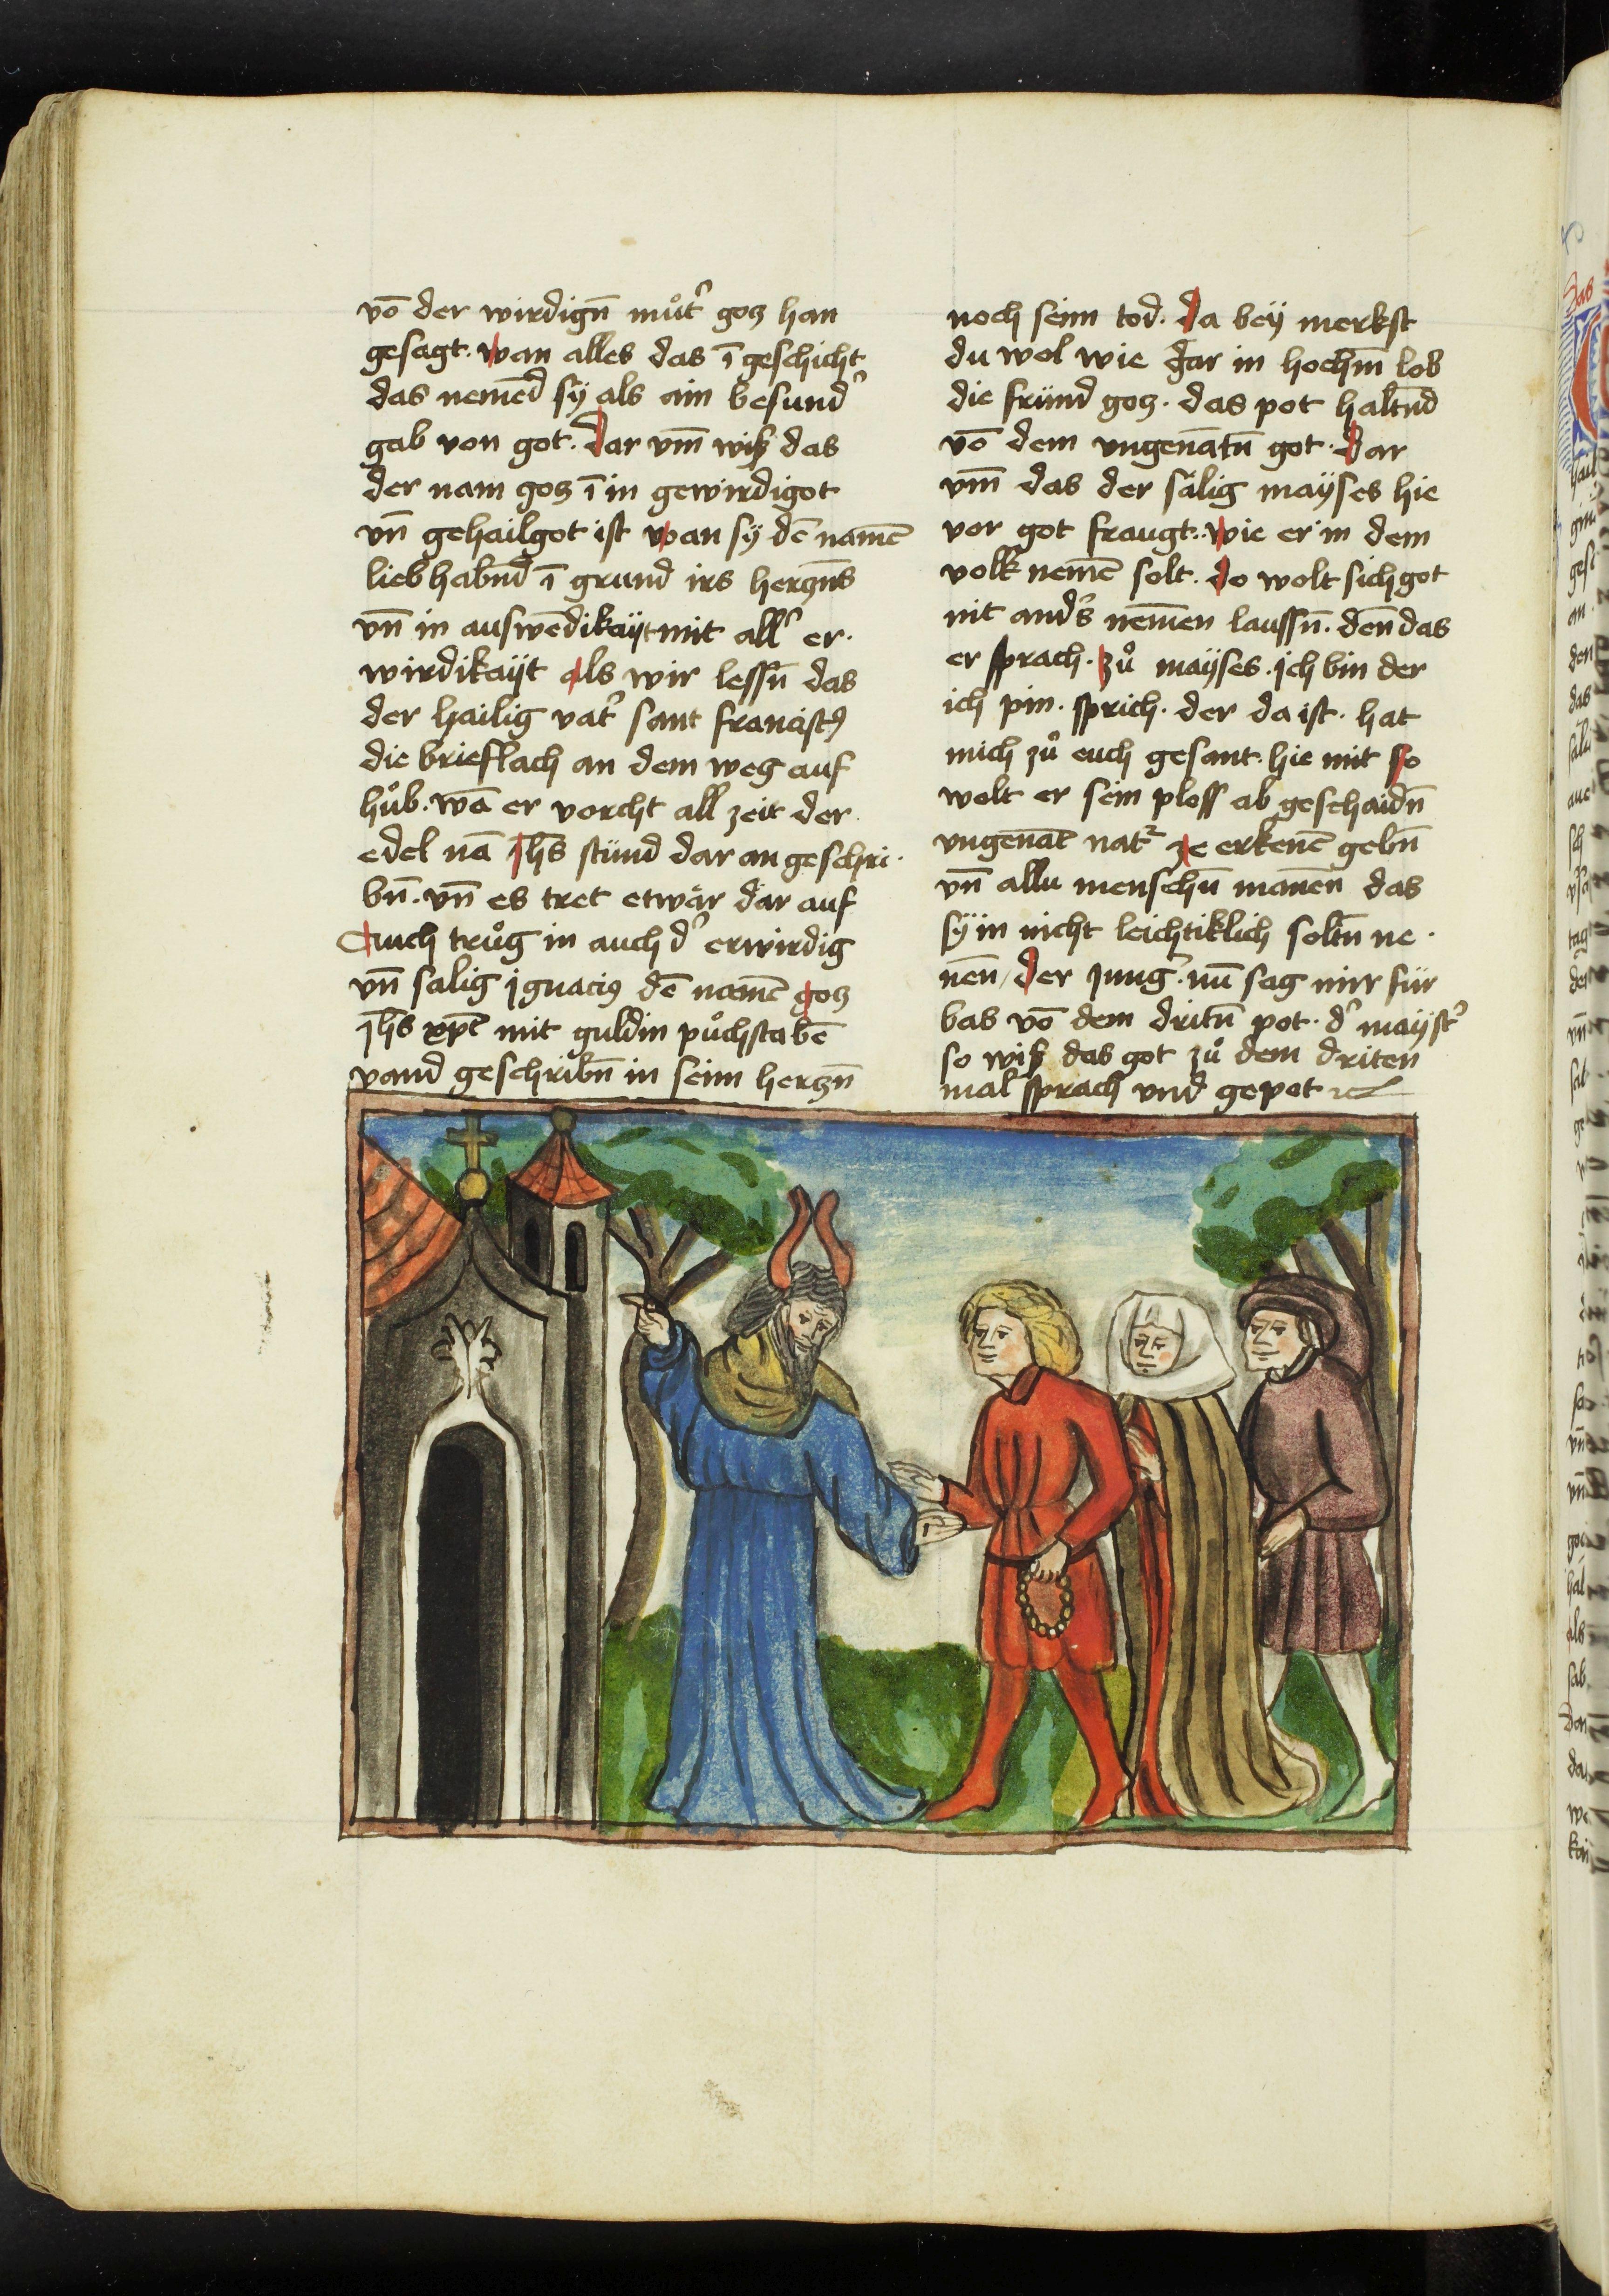 vō der wirdign̄ můt᷑ gotz han
gesagt. wan alles das ī geschicht
das nemēd sy als ain besund᷑
gab von got. Dar vm̄ wiß das
der nam gotz ī in gewirdigot
vn̄ gehailgot ist wan sy dē namē
lieb habnd̄ ī grund irs hertzn̄s
vn̄ in auswēdikayt mit all᷑ er.
wirdikayt als wir lessn̄ das
der hailig vat᷑ sant franciscꝰ
die brieflach an dem weg auf
hůb. wā er vorcht all zeit der
edel nā Jhs̄ stünd dar an geschri.
bn̄. vn̄ es tret etwär dar auf
Auch trůg in auch d᷑ erwirdig
vn̄ salig jgnaciꝰ dē namē gotz
jhs̄ xp̄c mit guldin půchstabē
vand geschribn̄ in seim hertzn̄
noch seim tod. Da bey merkst
du wol wie gar in hochm̄ lob
die fründ gotz. das pot haltn̄d
vō dem vngenātn̄ got. Dar
vm̄ das der sälig mayses hie
vor got fraugt. wie er in dem
volk nemē solt. do wolt sich got
nit and᷑s nem̄en laussn̄. den̄ das
er sprach. zů mayses. ich bin der
ich pin. sprich. der da ist. hat
mich zů euch gesant. hie mit so
wolt er sein ploss ab geschaidn̄
vngenāt nat᷑ ze erkenē gebn̄
vn̄ allu menschn̄ manen̄ das
sy in nicht leichtiklich soltn̄ ne.
nen̄/ Der jung᷑. nū sag mir für
bas vō dem dritn̄ pot. d᷑ mayst᷑
so wiß das got zů dem driten
mal sprach vnd gepot ⁊c